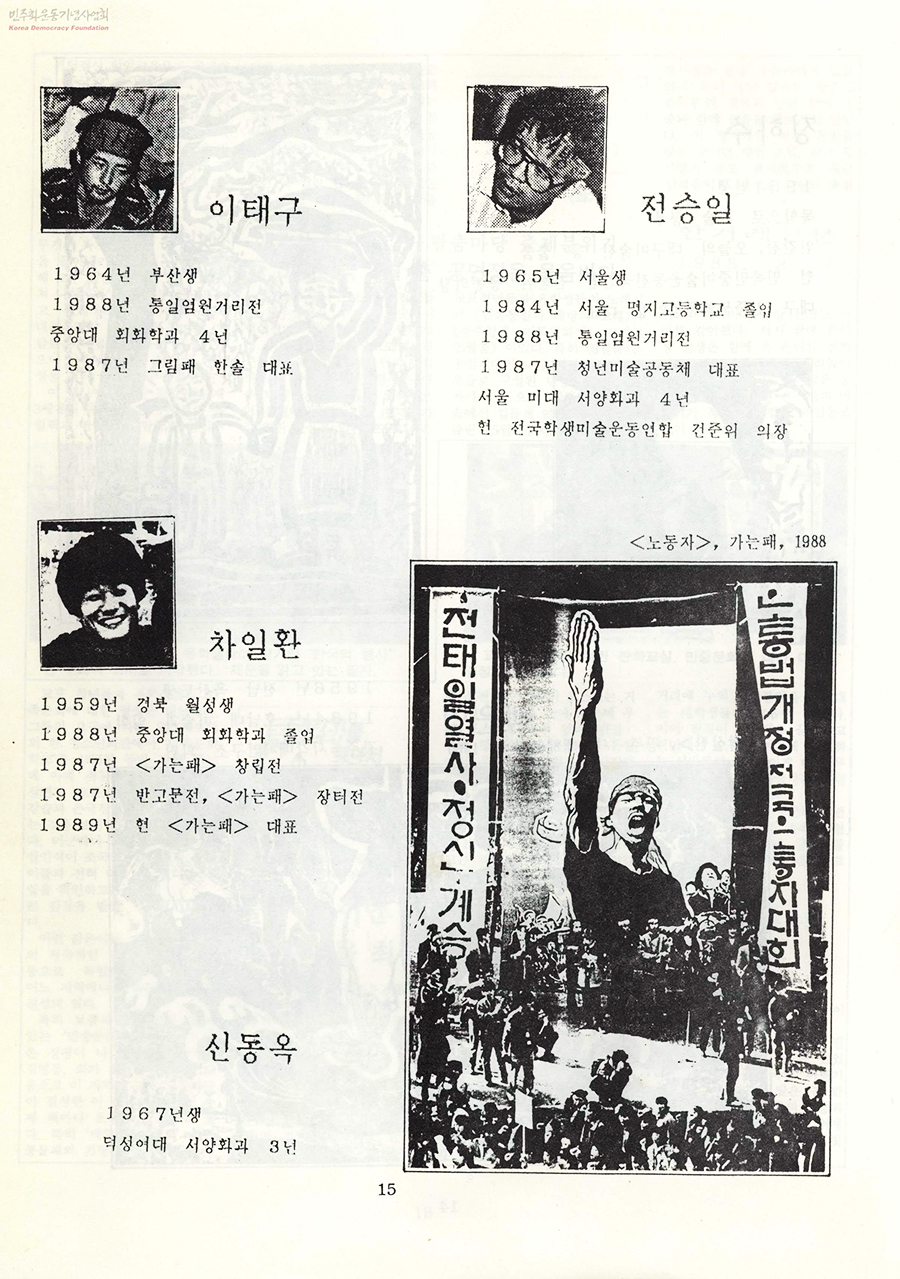 민주화운동기념사업회
Korea Democracy Foundation
이태구
1964년 부산생
1988년 통일염원거리전
중앙대 회화학과 4년
1987년 그림패 한솔 대표
전승일
1965년 서울생
1984년 서울 명지고등학교 졸업
1988년 통일염원거리전
1987년 청년미술공동체 대표
서울 미대 서양화과 4년
현 전국학생미술운동연합 건준위 의장
차일환
1959년 경북 월성생
1988년 중앙대 회화학과 졸업
1987년 <가는패> 창립전
1987년 반고문전, <가는패> 장터전
1989년 현 <가는패> 대표
신동옥
1967년생
덕성여대 서양화과 3년
<노동자>, 가는패, 1988
전태일열사·정신계승
노동법개정전국노동자대회
15